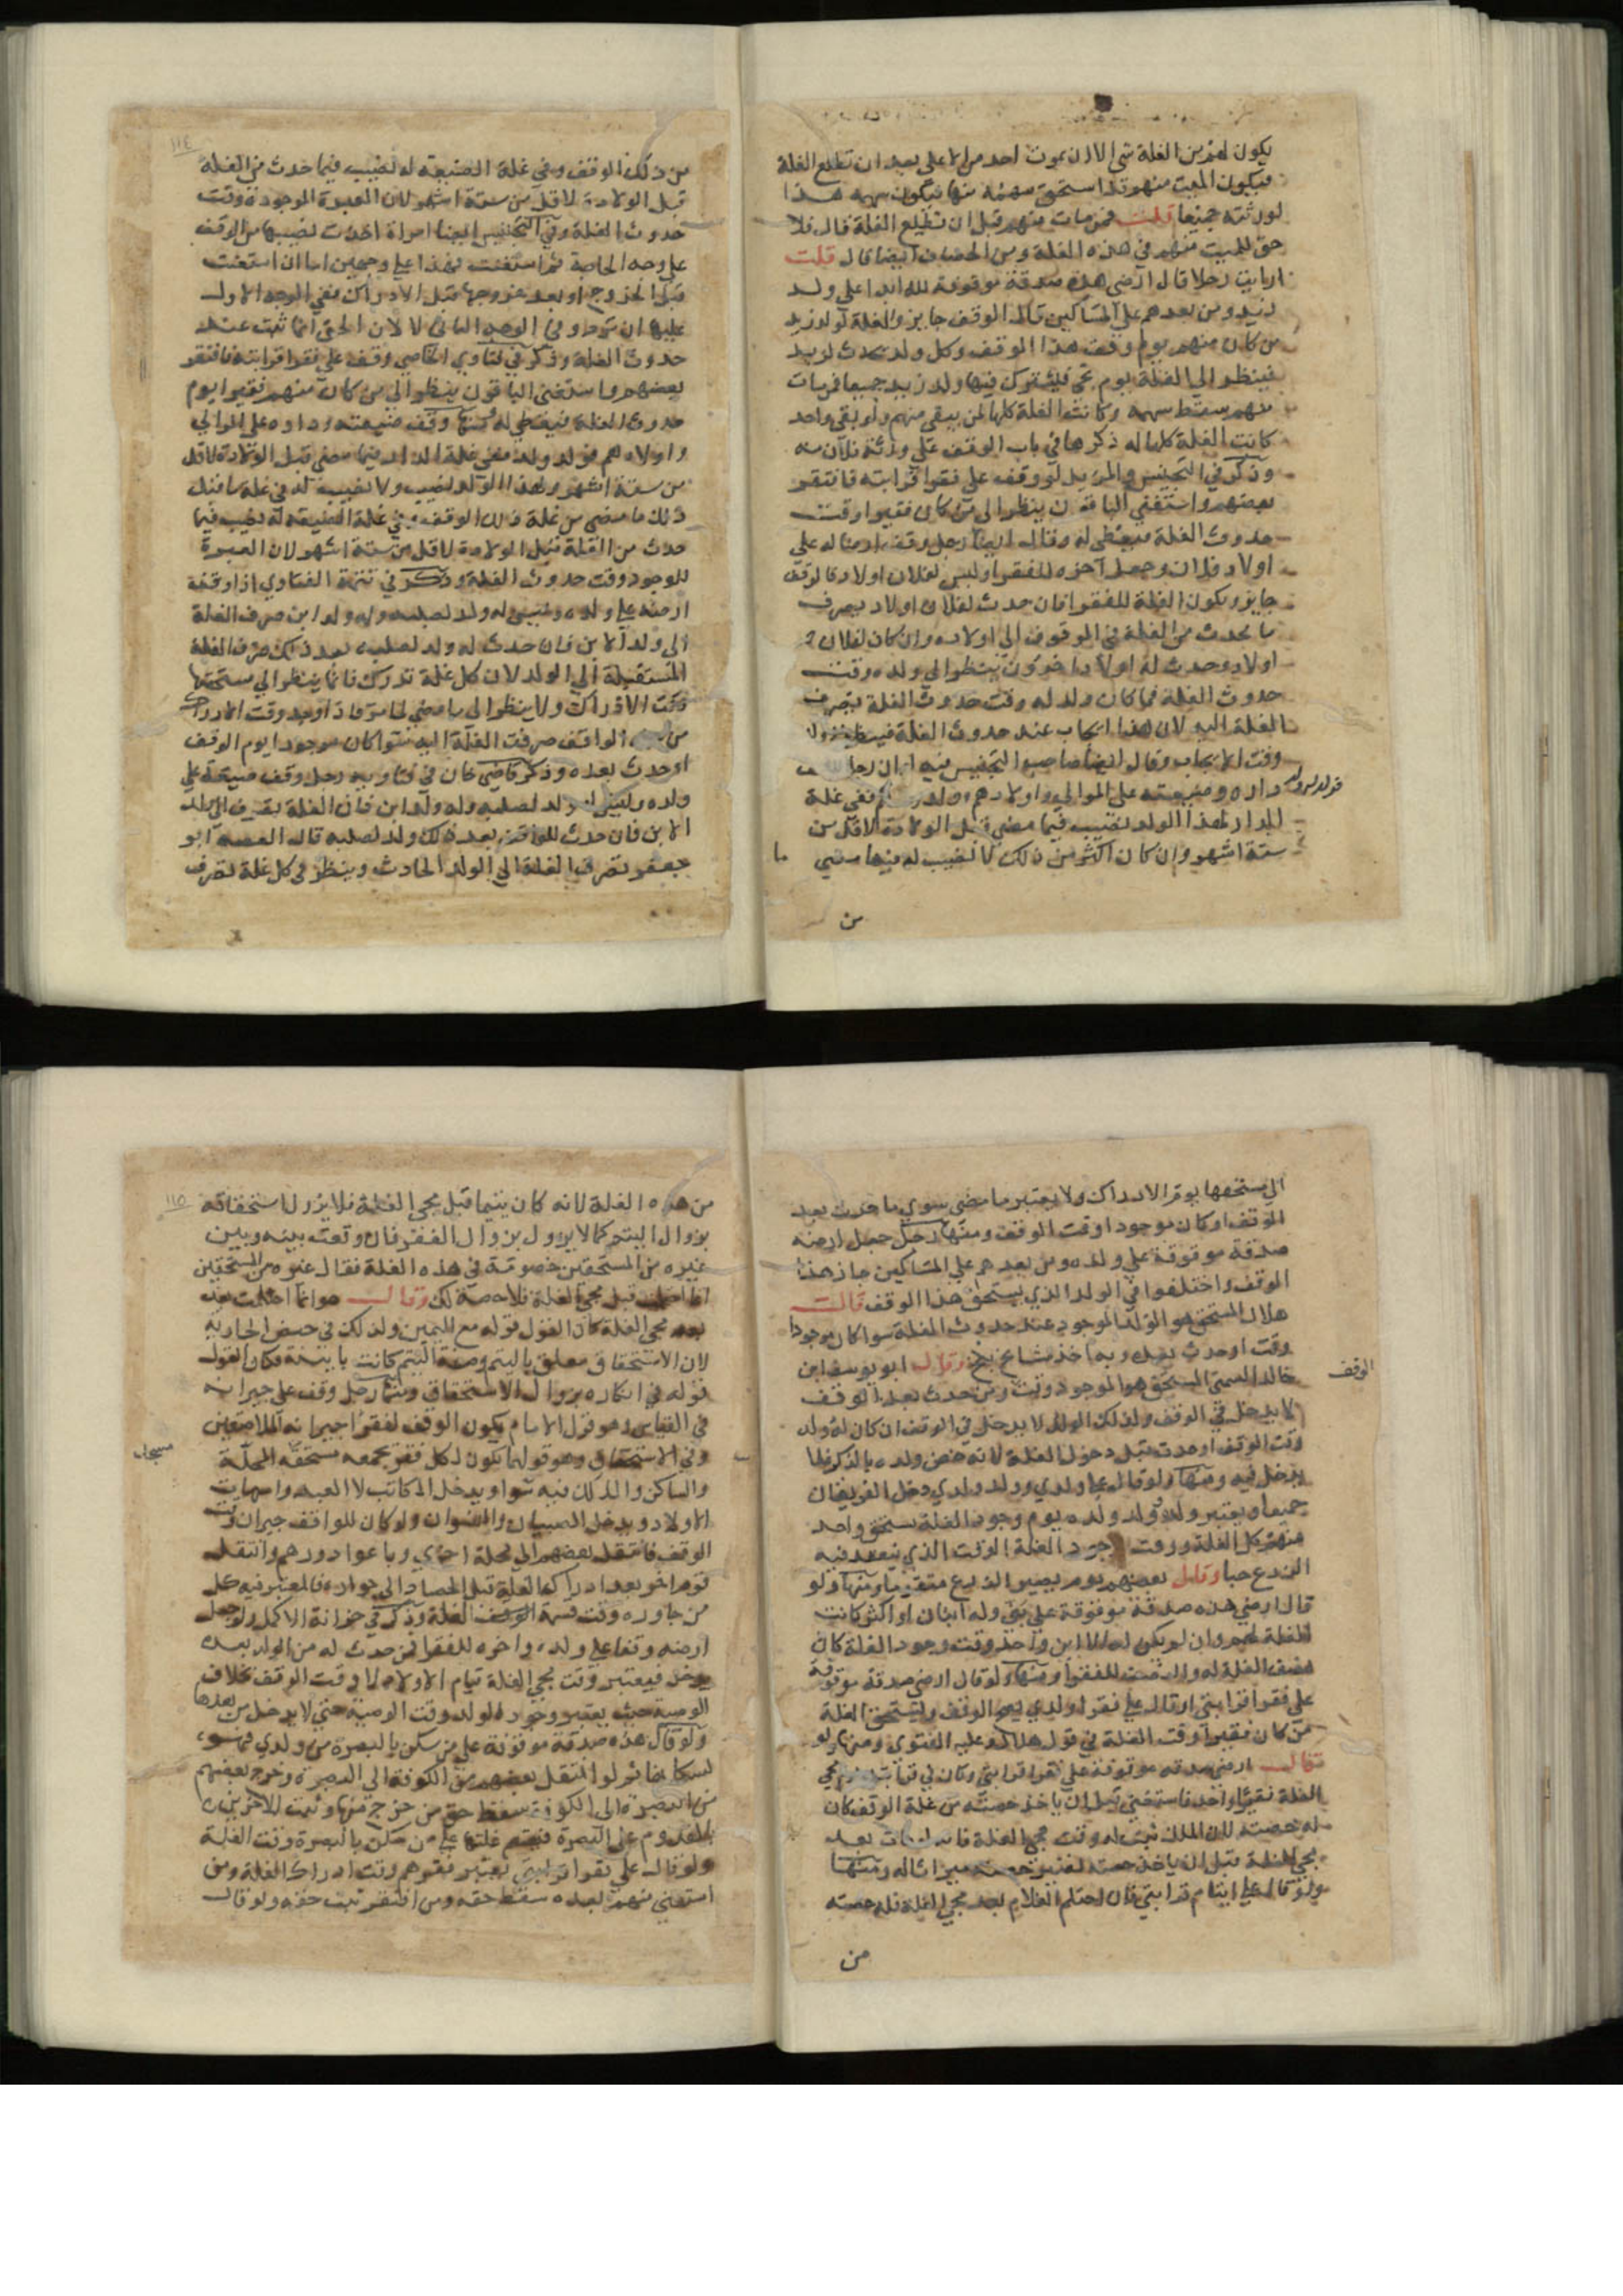 يكون لهم من الغلة شي الا ان يموت احد من الاعلى بعد ان تطلع الغلة
فيكون الميت منهم قد استحق سهمه منها فيكون سهمه هذا
لورثته جميعا قلت فمن مات منهم قبل ان تطلع الغلة قال فلا
حق للميت منهم في هذه الغلة ومن الخصاف ايضا قال قلت
ارايت رجلا قال ارضي هذه صدقة موقوفة لله ابدا على ولد
زيد ومن بعدهم على المساكين قال الوقف جايز والغلة لولد زيد
من كان منهم يوم وقف هذا الوقف وكل ولد يحدث لزيد
فينظر الى الغلة يوم تجي فيشترك فيها ولد زيد جميعا فمن مات
منهم سقط سهمه وكانت الغلة كلها لمن يبقى منهم ولو بقي واحد
كانت الغلة كلها له ذكرها في باب الوقف على ورثة فلان منه
وذكر في التجنيس والمزيد لو وقف على فقرا قرابته فافتقر
بعضهم واستغنى الباقون ينظر الى من كان فقيرا وقت
حدوث الغلة فيعطى له وقال ايضا رجل وقف ارضا له على
اولاد فلان وجعل آخره للفقرا وليس لفلان اولاد فالوقف
جايز ويكون الغلة للفقرا فان حدث لفلان اولاد يصرف
ما يحدث من الغلة في الموقوف الى اولاده وان كان لفلان
اولاد وحدث له اولاد اخرون ينظر الى ولده وقت
حدوث الغلة فما كان ولد له وقت حدوث الغلة يصرف
الغلة اليه لان هذا ايجاب عند حدوث الغلة فينظر
وقت الايجاب وقال ايضا صاحب التجنيس فيه ان رجلا وقف
داره وضيعته على الموالي واولادهم فولد ففي غلة
فولد لهم ولد
الدار لهذا الولد نصيب فيما مضى قبل الولادة لاقل من
ستة اشهر وان كان اكثر من ذلك لا نصيب له فيها مضى
ما
من
١١٤
من ذلك الوقف وفي غلة الضيعة له نصيب فيما حدث من الغلة
قبل الولادة لاقل من ستة اشهر لان العبرة للوجود وقت
حدوث الغلة وفي التجنيس ايضا امراة اخذت نصيبها من الوقف
على وجه الحاجة ثم استغنت فهذا على وجهين اما ان استغنت
قبل الخروج او بعد خروجها قبل الادراك ففي الوجه الاول
عليها ان ترد وفي الوجه الثاني لا لان الحق انما ثبت عند
حدوث الغلة وذكر في فتاوي الخاصي وقف على فقرا قرابته فافتقر
بعضهم واستغنى الباقون ينظر الى من كان منهم فقيرا يوم
حدوث الغلة فيعطى له ومنها وقف ضيعته وداره على الموالي
واولادهم فولد ولد ففي غلة الدار فيما مضى قبل الولادة لاقل
من ستة اشهر لهذا الولد نصيب ولا نصيب له في غلة ما قبل
ذلك ما مضى من غلة ذلك الوقف وفي غلة الضيعة له نصيب فيما
حدث من الغلة قبل الولادة لاقل من ستة اشهر لان العبرة
للوجود وقت حدوث الغلة وذكر في تتمة الفتاوي اذا وقف
ارضه على ولده وليس له ولد لصلبه وله ولد ابن صرف الغلة
الى ولد الابن فان حدث له ولد لصلبه بعد ذلك صرف الغلة
المستقبلة الى الولد لان كل غلة تدرك فانما ينظر الى مستحقها
وقت الادراك ولا ينظر الى ما مضى لما مر فاذا وجد وقت الادراك
من الواقف صرفت الغلة اليه سوا كان موجودا يوم الوقف
او حدث بعده وذكر قاضي خان في فتاويه رجل وقف ضيعة على
ولده وليس له ولد لصلبه وله ولد ابن فان الغلة تصرف الى ولد
الابن فان حدث للواقف بعد ذلك ولد لصلبه قال الفقيه ابو
جعفر تصرف الغلة الى الولد الحادث وينظر في كل غلة تصرف
الى مستحقها يوم الادراك ولا يعتبر ما مضى سوي ما حدث بعد
الوقف او كان موجودا وقت الوقف ومنها رجل جعل ارضه
صدقة موقوفة على ولده ومن بعدهم على المساكين جاز هذا
الوقف واختلفوا في الولد الذي يستحق هذا الوقف قالت
هلال المستحق هو الولد الموجود عند حدوث الغلة سوا كان موجودا
وقت او حدث بعده وبه اخذ مشايخ بلخ وقال ابو يوسف ابن
الوقف
خالد السمتي المستحق هو الموجود وقت ومن حدث بعد الوقف
لا يدخل في الوقف وكذلك الولد لا يدخل في الوقف ان كان له ولد
وقت الوقف او حدث قبل دخول الغلة لانه خص ولده بالذكر فلا
يدخل فيه ومنها ولو قال على ولدي وولد ولدي دخل الفريقان
جميعا ويعتبر ولده وولد ولده يوم وجود الغلة يستحق واحد
منهم كل الغلة ووقت وجود الغلة الوقت الذي ينعقد فيه
الزرع حبا وقال بعضهم يوم يصير الزرع متقوما ومنها ولو
قال ارضي هذه صدقة موقوفة على بني وله ابنان او اكثر كانت
الغلة لهم وان لم يكن له الا ابن واحد وقت وجود الغلة كان
نصف الغلة له والنصف للفقرا ومنها ولو قال ارضي صدقة موقوفة
على فقرا قرابتي او قال على فقرا ولدي يصح الوقف ويستحق الغلة
من كان فقيرا وقت الغلة في قول هلال وعليه الفتوى ومنها ولو
قال ارضي صدقة موقوفة على فقرا قرابتي وكان في قرابته يوم مجي
الغلة فقيرا واحد فاستغنى قبل ان ياخذ حصته من غلة الوقف كان
له حصته لان الملك ثبت له وقت مجي الغلة فان مات بعد
مجي الغلة قبل ان ياخذ حصته تصير حصته ميراثا له ومنها
ولو قال على ايتام قرابتي فان احتلم الغلام بعد مجي الغلة فله حصته
من
١١٥
من هذه الغلة لانه كان يتيما قبل مجي الغلة فلا يزول استحقاقه
بزوال اليتم كما لا يزول بزوال الفقر فان وقعت بينه وبين
غيره من المستحقين خصومة في هذه الغلة فقال غيره من المستحقين
انما احتلمت قبل مجي الغلة فلا حصة لك وقال هو انما احتلمت بعد
بعد مجي الغلة كان القول قوله مع اليمين وكذلك في حيض الجارية
لان الاستحقاق معلق باليتم وصفة اليتم كانت ثابتة فكان القول
قوله في انكاره بزوال الاستحقاق ومنها رجل وقف على جيرانه
في القياس وهو قول الامام يكون الوقف لفقرا جيرانه الملاصقين
وفي الاستحسان وهو قولهما يكون لكل فقير يجمعه مسجد المحلة
مسجد
والساكن والمالك فيه سوا ويدخل المكاتب لا العبد وامهات
الاولاد ويدخل الصبيان والنسوان ولو كان للواقف جيران وقت
الوقف فانتقل بعضهم الى محلة اخري وباعوا دورهم وانتقل
قوم اخر بعد ادراك الغلة قبل الحصاد الى جواره فالمعتبر فيه كل
من جاوره وقت قسمة الغلة وذكر في خزانة الاكمل ولو جعل
ارضه وقفا على ولده واخره للفقرا فمن حدث له من الولد بعده
يدخل فيعتبر وقت مجي الغلة قيام الاولاد لا وقت الوقف بخلاف
الوصية حيث يعتبر وجود الولد وقت الوصية حتى لا يدخل من بعدها
ولو قال هذه صدقة موقوفة على من سكن بالبصرة من ولدي
ثم لو انتقل بعضهم من الكوفة الى البصرة وخرج بعضهم
من البصرة الى الكوفة سقط حق من خرج منها وثبت للاخرين
بالقدوم على البصرة فيقسم غلتها على من سكن بالبصرة وقت الغلة
ولو قال على فقرا قرابتي يعتبر فقرهم وقت ادراك الغلة ومن
استغنى منهم بعده سقط حقه ومن افتقر ثبت حقه ولو قال